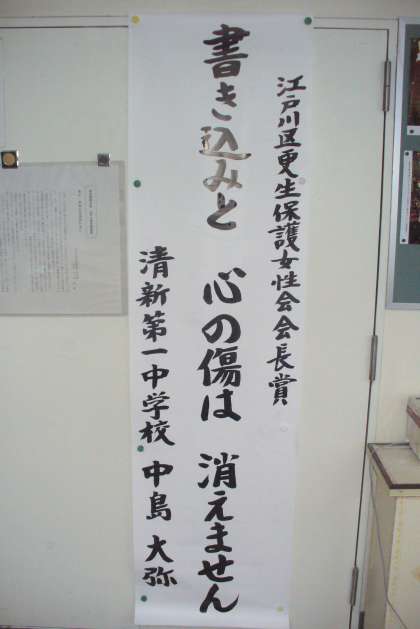 江戸川区更生保護女性会会長賞
書き込みと 心の傷は 消えません
清新第一中学校 中島 大弥